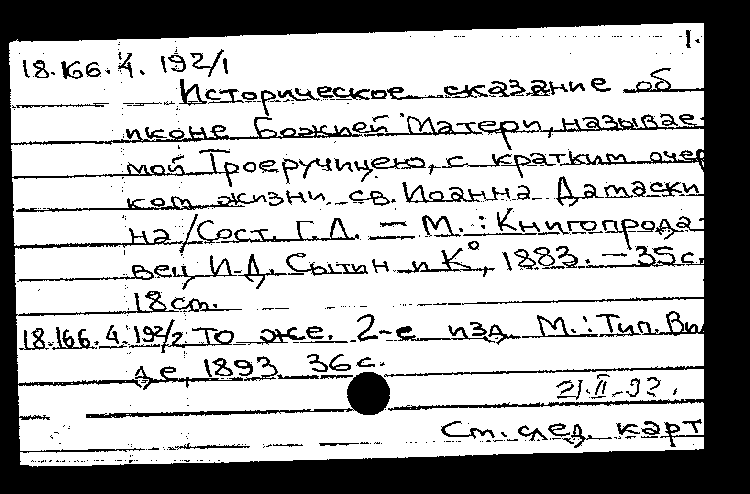 1.
18.166.4.192/1
Историческое сказание об
иконе Божией Матери, называе-
мой Троеручицею, с кратким очер
ком жизни св. Иоанна Дамаски
на / Сост. Г.Л. — М. : Книгопрода-
вец И.Д. Сытин и К°, 1883. — 35 с.
18 см.
18.166.4.192/2 То же. 2-е изд. М. : Тип. Виль
де, 1893. 36 с.
21.II-92.
См. след. карт